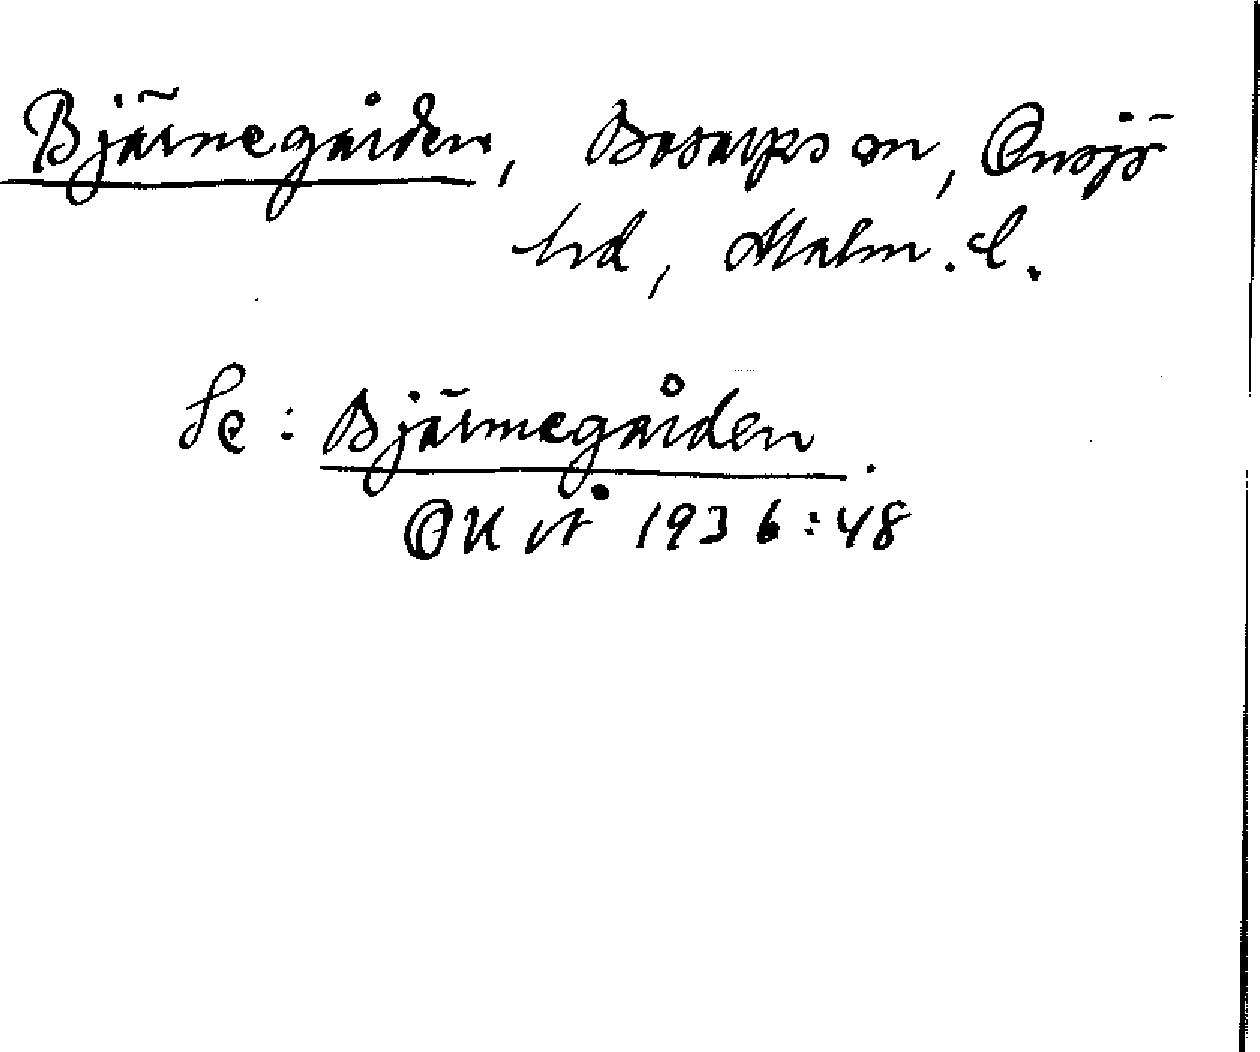 Bjärnegården, Bosarps sn, Onsjö
hd, Malm. l.
Se: Bjärnegården.
OKÅ 1936:48